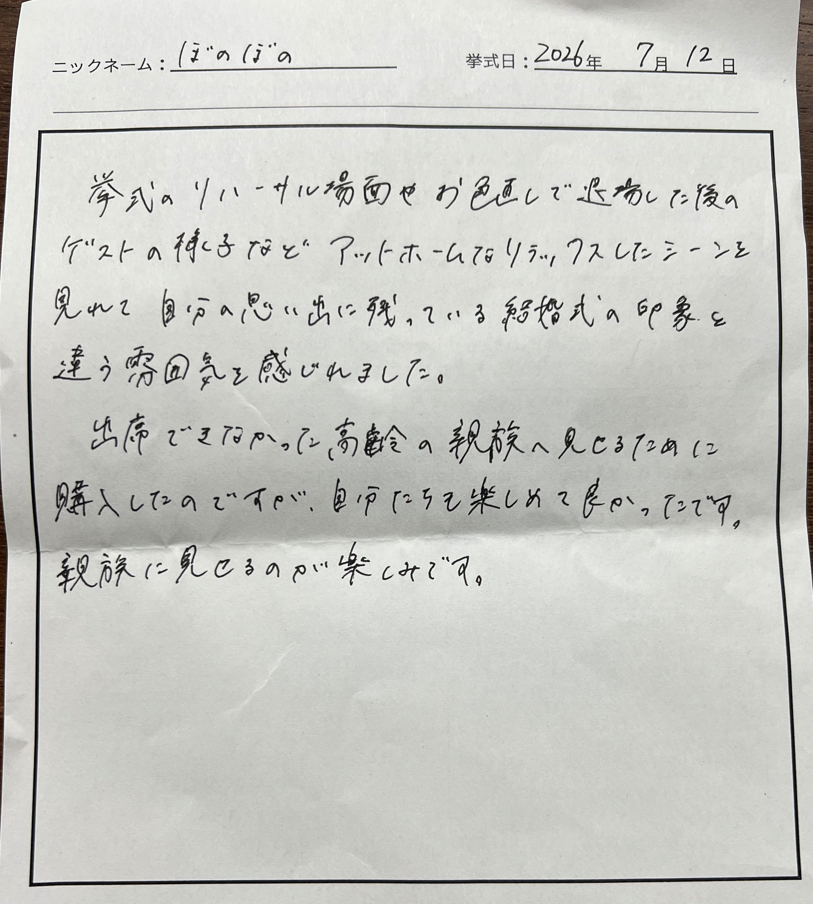 ニックネーム：ぼのぼの
挙式日：2026年 7月 12日
挙式のリハーサル場面やお色直しで退場した後の
ゲストの様子など アットホームなリラックスしたシーンを
見れて 自分の思い出に残っている結婚式の印象と
違う雰囲気を感じれました。
出席できなかった高齢の親族へ見せるために
購入したのですが、自分たちも楽しめて良かったです。
親族に見せるのが楽しみです。